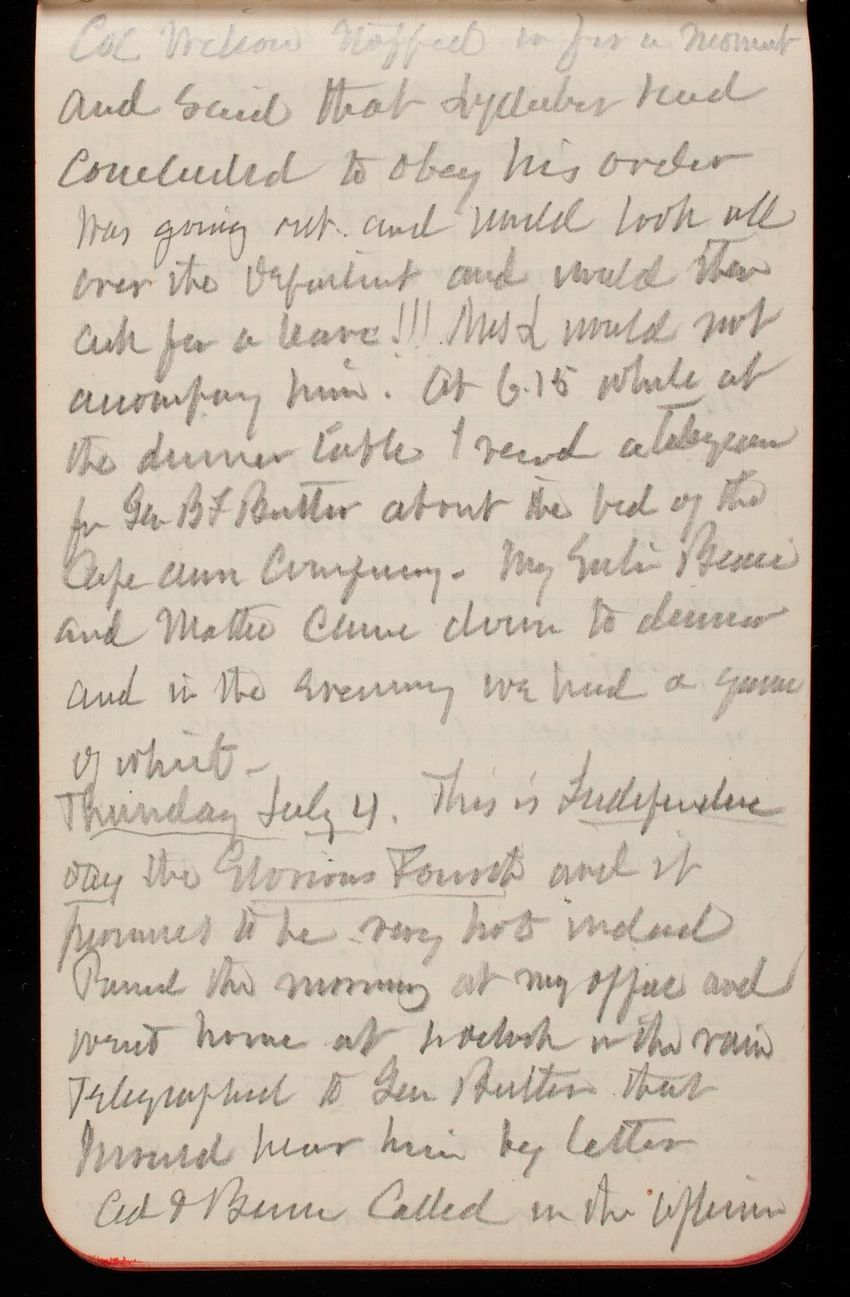 Col Wilson stopped in for a moment
and said that Lydecker had
concluded to obey his order
was going out and would look all
over the Department and would then
ask for a leave!!! Mrs L would not
accompany him. At 6.15 while at
the dinner table I recvd a telegram
fr Gen BF Butler about the bid of the
Cape ann Company. My
and came down to dinner
and in the evening we had a game
of whist -
Thursday July 4. This is Independence
day the Glorious Fourth and it
promises to be very hot indeed
Passed the morning at my office and
went home at in the rain
Telegraphed to Gen Butler that
I would hear him by letter
Called in the